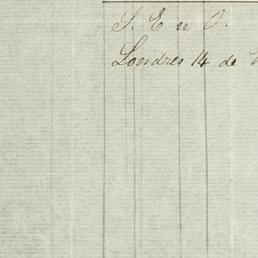 S. E u O.
Londres 14 de